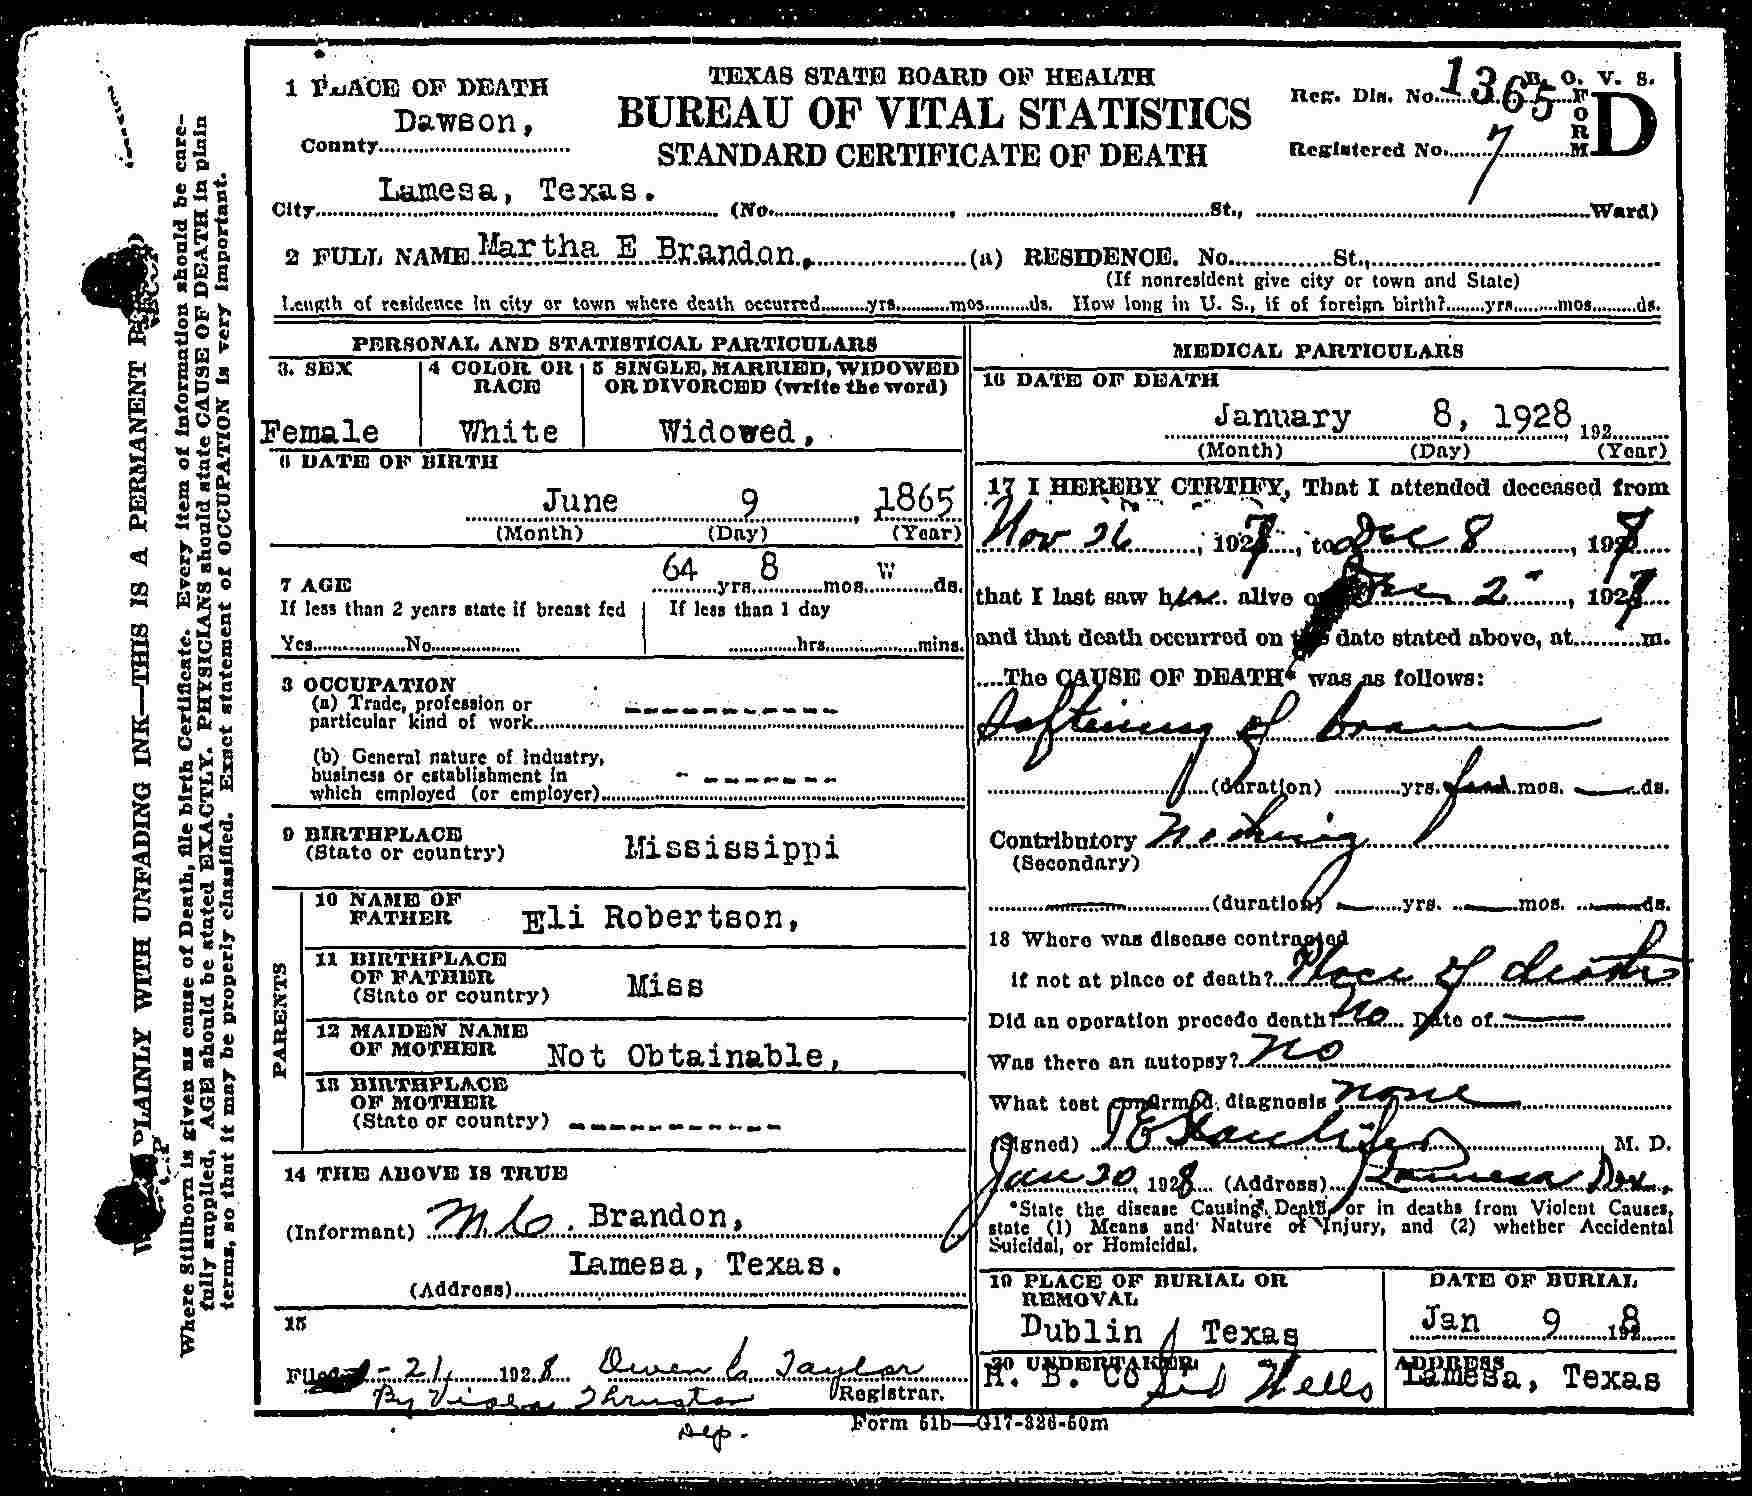 TEXAS STATE BOARD OF HEALTH
BUREAU OF VITAL STATISTICS
STANDARD CERTIFICATE OF DEATH
B. O. V. S.
FORM D
Reg. Dis. No. 1365
Registered No. 7
1 PLACE OF DEATH
County Dawson,
City Lamesa, Texas. (No. , St., Ward)
2 FULL NAME Martha E Brandon, (a) RESIDENCE. No. St.,
(If nonresident give city or town and State)
Length of residence in city or town where death occurred yrs. mos. ds. How long in U. S., if of foreign birth? yrs. mos. ds.
PERSONAL AND STATISTICAL PARTICULARS
3. SEX
Female
4 COLOR OR RACE
White
5 SINGLE, MARRIED, WIDOWED
OR DIVORCED (write the word)
Widowed,
6 DATE OF BIRTH
June 9, 1865
(Month) (Day) (Year)
7 AGE 64 yrs. 8 mos. w ds.
If less than 2 years state if breast fed
Yes No
If less than 1 day
hrs. mins.
8 OCCUPATION
(a) Trade, profession or
particular kind of work ----------
(b) General nature of industry,
business or establishment in
which employed (or employer) --------
9 BIRTHPLACE
(State or country) Mississippi
PARENTS
10 NAME OF
FATHER Eli Robertson,
11 BIRTHPLACE
OF FATHER
(State or country) Miss
12 MAIDEN NAME
OF MOTHER Not Obtainable,
13 BIRTHPLACE
OF MOTHER
(State or country) -----------
14 THE ABOVE IS TRUE
(Informant) M. C. Brandon,
(Address) Lamesa, Texas.
15
Filed 1928 Owen C Taylor
Registrar.
By Viola Thruston
Dep.
MEDICAL PARTICULARS
16 DATE OF DEATH
January 8, 1928 192
(Month) (Day) (Year)
17 I HEREBY CTRTIFY, That I attended deceased from
Nov 26, 1927, to Dec 8, 1927
that I last saw her alive on Dec 2, 1927
and that death occurred on the date stated above, at m.
The CAUSE OF DEATH* was as follows:
Softening of brain
(duration) yrs. mos. ds.
Contributory Nothing
(Secondary)
(duration) yrs. mos. ds.
18 Where was disease contracted
if not at place of death? Place of death
Did an operation precede death? No Date of
Was there an autopsy? No
What test confirmed diagnosis none
(Signed) M. D.
Jan 20, 1928 (Address) Lamesa Tex.
*State the disease Causing Death, or in deaths from Violent Causes,
state (1) Means and Nature of Injury, and (2) whether Accidental
Suicidal, or Homicidal.
19 PLACE OF BURIAL OR
REMOVAL
Dublin Texas
DATE OF BURIAL
Jan 9 1928
20 UNDERTAKER
H. B. Co Sid Wells
ADDRESS
Lamesa, Texas
Form 51b—G17-326-50m
PLAINLY WITH UNFADING INK—THIS IS A PERMANENT
Where Stillborn is given as cause of Death, file birth Certificate. Every item of information should be care-
fully supplied. AGE should be stated EXACTLY. PHYSICIANS should state CAUSE OF DEATH in plain
terms, so that it may be properly classified. Exact statement of OCCUPATION is very important.